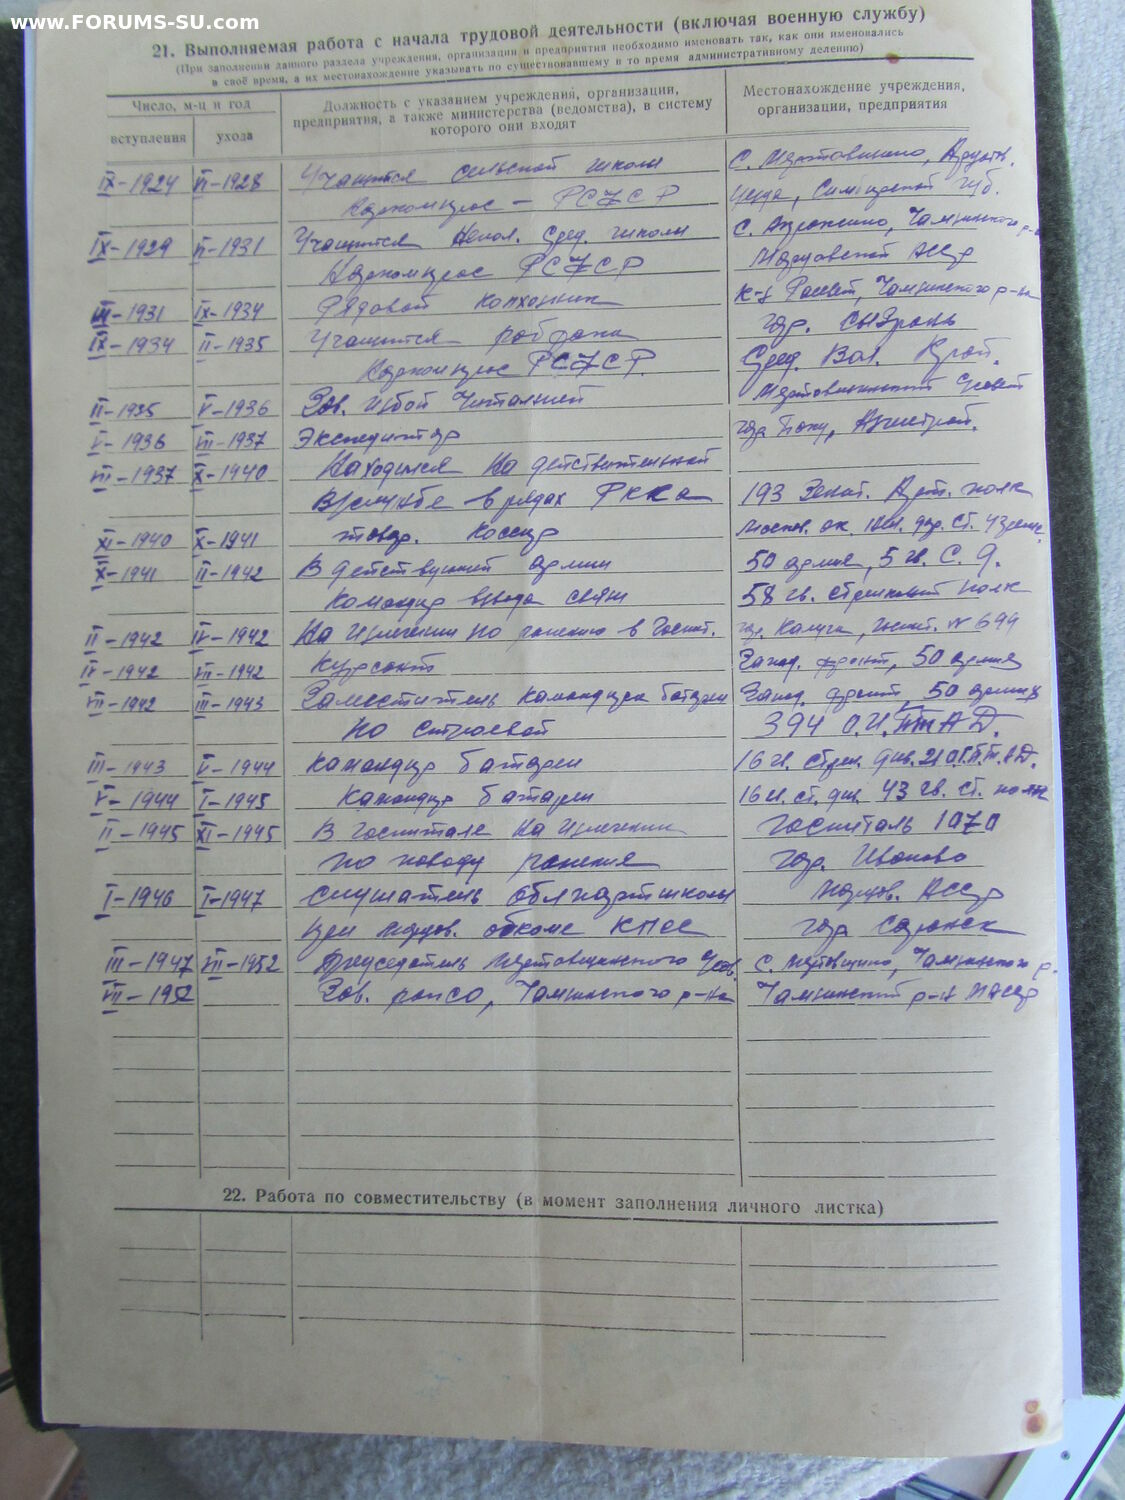 www.FORUMS-SU.com
21. Выполняемая работа с начала трудовой деятельности (включая военную службу)
(При заполнении данного раздела учреждения, организации и предприятия необходимо именовать так, как они именовались
в своё время, а их местонахождение указывать по существовавшему в то время административному делению)
Число, м-ц и год
вступления
ухода
Должность с указанием учреждения, организации,
предприятия, а также министерства (ведомства), в систему
которого они входят
Местонахождение учреждения,
организации, предприятия
IX-1924 VI-1928 Учащийся сельской школы С.
Наркомпрос - РСФСР уезда, Симбирской губ.
IX-1929 II-1931 Учащийся Непол. сред. школы С. Апраксино, Чамзинского р-н
Наркомпрос РСФСР Мордовской АССР
III-1931 IX-1934 Рядовой колхозник к-з Рассвет, Чамзинского р-на
IX-1934 II-1935 Учащийся рабфака гор. Сызрань
Наркомпрос РСФСР Сред. Вол. Край.
II-1935 V-1936 Зав. избой читальней
V-1936 VII-1937 Экспедитор гор. Баку, Азнестрой.
VII-1937 X-1940 Находился на действительной
в/службе в рядах РККА 193 Зенит. Арт. полк
XI-1940 X-1941 товар. кассир Москов. ок. ст.
X-1941 II-1942 В действующей армии 50 армия, 5 гв. С. Д.
командир взвода связи 58 гв. стрелковый полк
II-1942 IV-1942 На излечении по ранению в госпит. гор. Калуга, госпит. № 694
IV-1942 VII-1942 курсант Запад. фронт, 50 армия
VII-1942 III-1943 Заместитель командира батареи Запад. фронт 50 армия
по строевой 394 О.И.ПТАД.
III-1943 V-1944 командир батареи 16 гв. стрел. див. 21 О.Г.П.Т.А.Д.
V-1944 I-1945 командир батареи 16 гв. ст. див. 43 гв. ст. полк
II-1945 XI-1945 В госпитале на излечении госпиталь 1070
по поводу ранения гор. Иваново
I-1946 I-1947 слушатель облпартшколы Мордов. АССР
при Мордов. обкоме КПСС гор Саранск
III-1947 VII-1952 Председатель Сов. С. Чамзинского р.
VII-1952 Зав. райсо, Чамзинского р-на Чамзинский р-н МАССР
22. Работа по совместительству (в момент заполнения личного листка)